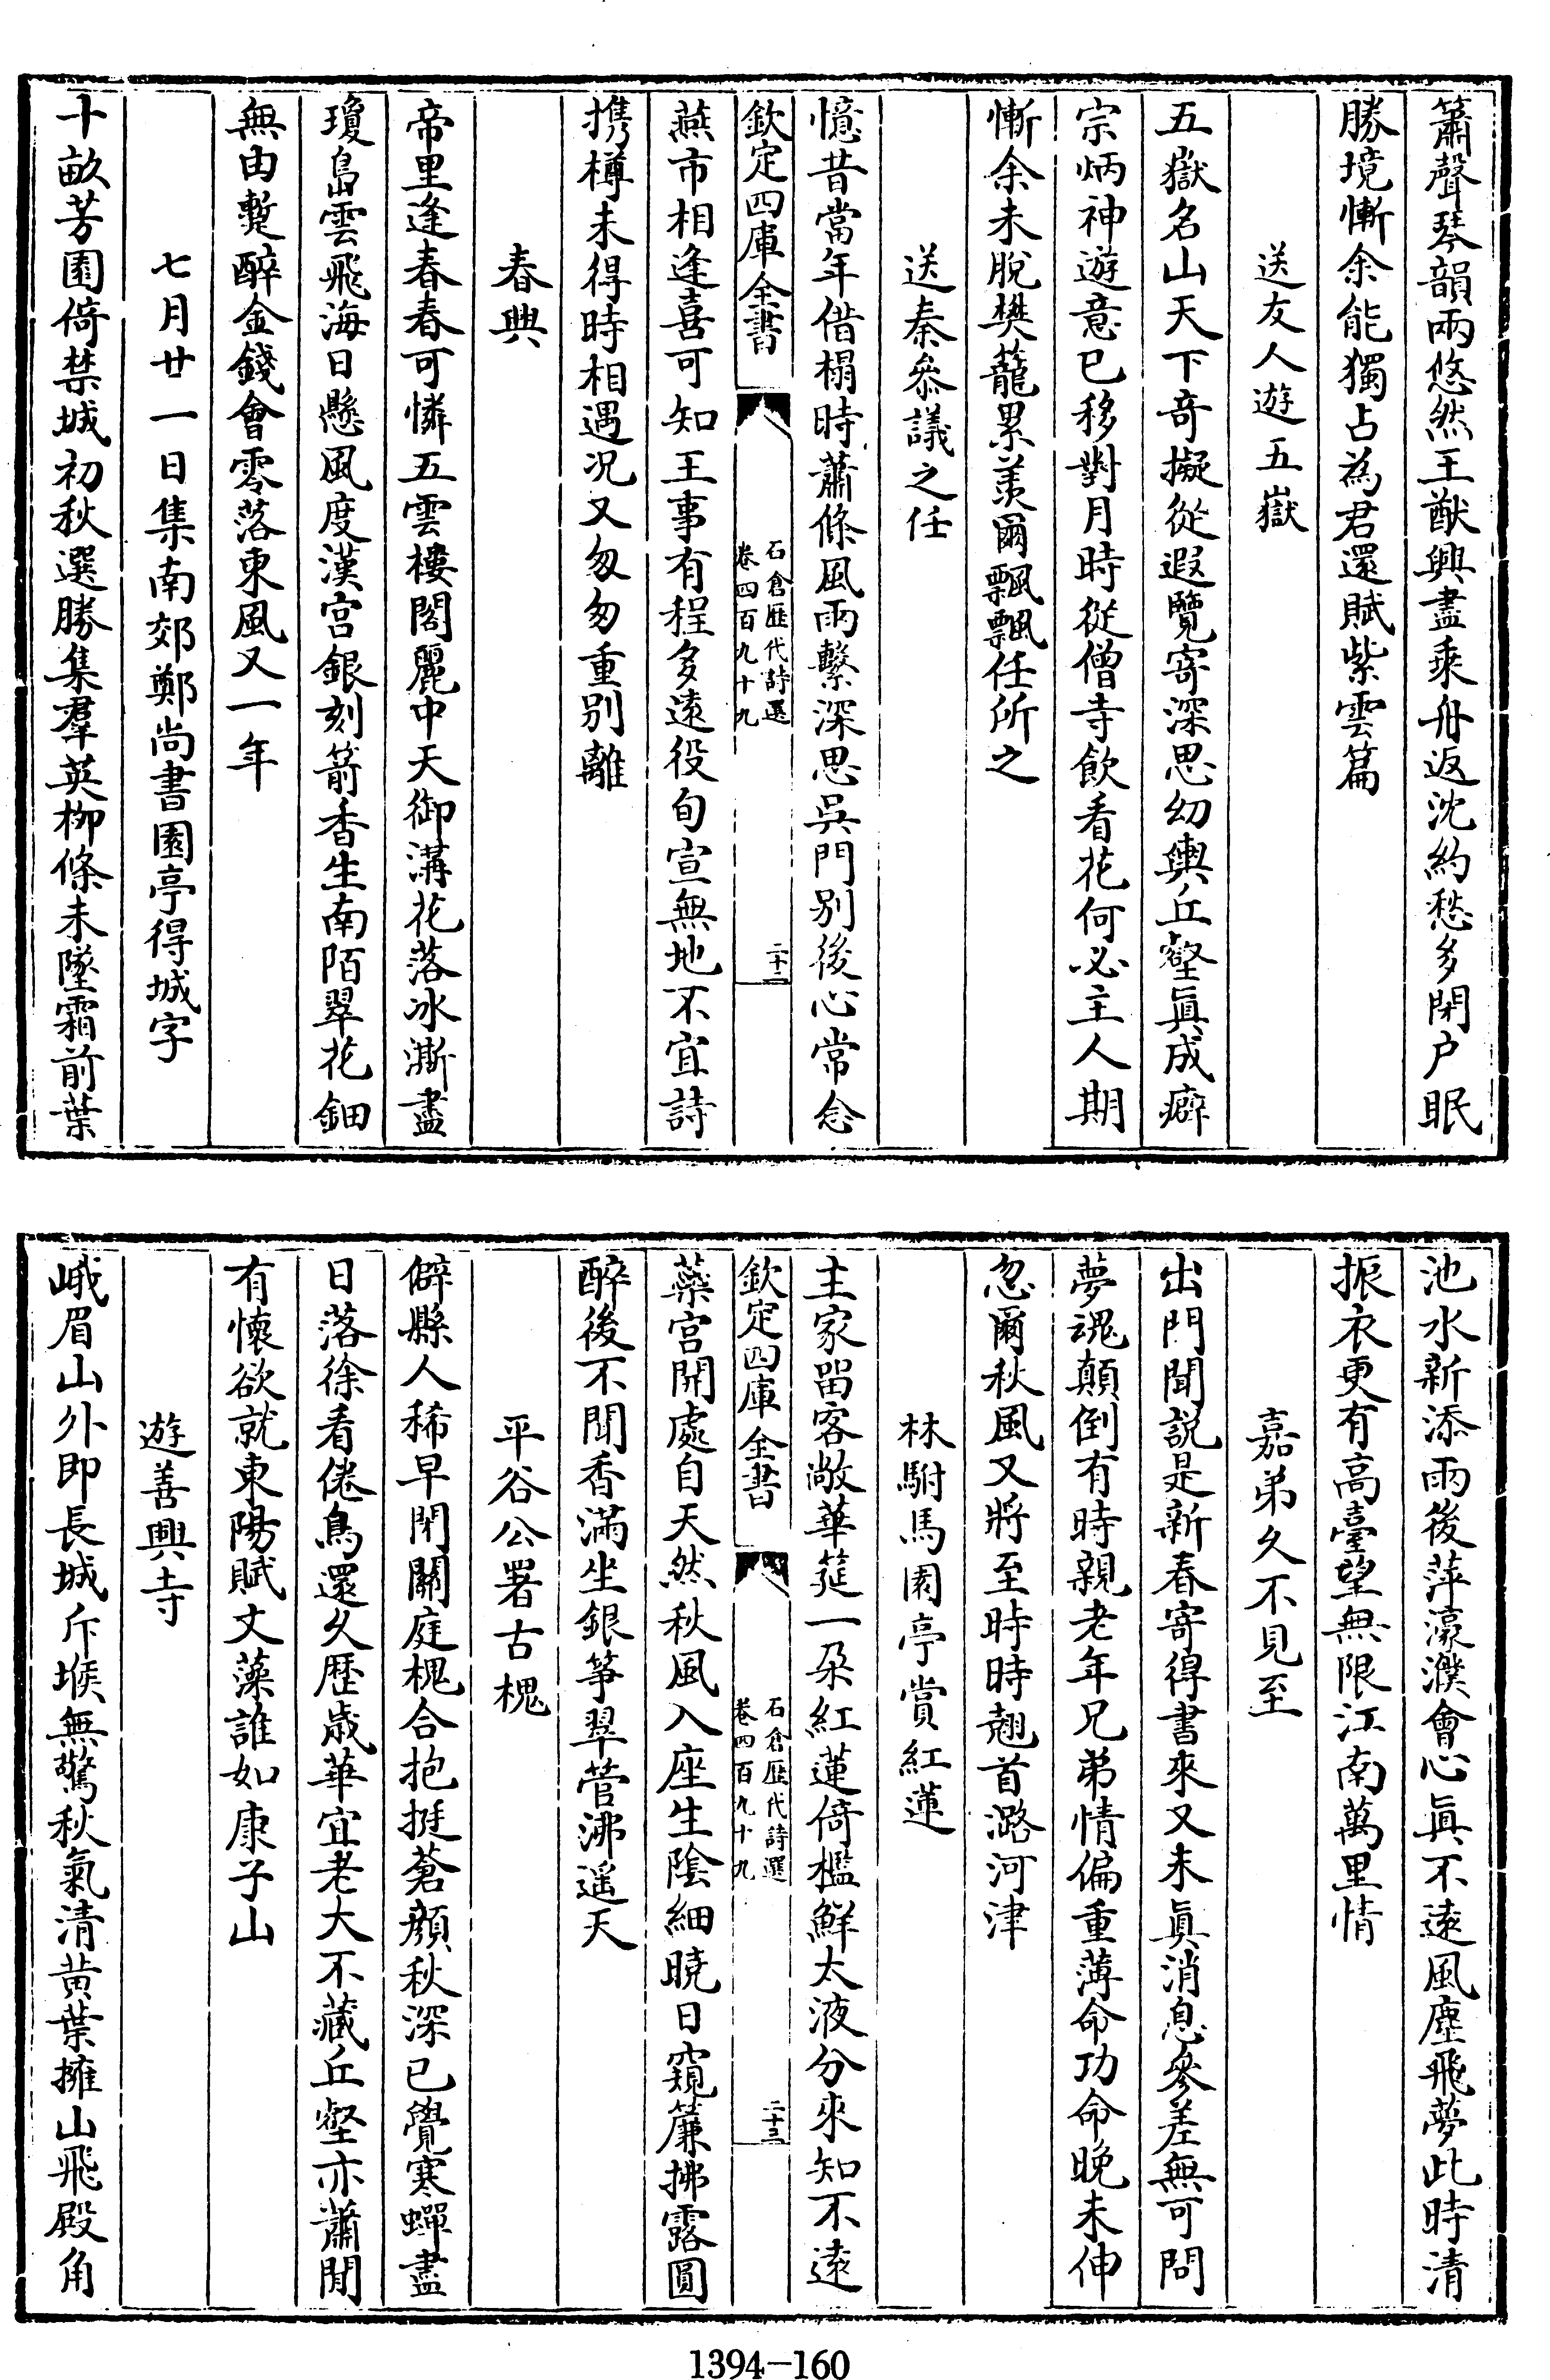 簫聲琴韻兩悠然王猷興盡乘舟返沈約愁多閉户眠
勝境慚余能獨占為君還賦紫雲篇
送友人遊五嶽
五嶽名山天下奇擬從遐覽寄深思幼輿丘壑真成癖
宗炳神遊意已移對月時從僧寺飲看花何必主人期
慚余未脫樊籠累羨爾飄飄任所之
送秦叅議之任
憶昔當年借榻時蕭條風雨繫深思吳門别後心常念
欽定四庫全書
石倉歴代詩選
卷四百九十九
二十二
燕市相逢喜可知王事有程多遠役旬宣無地不宜詩
携樽未得時相遇况又匆匆重别離
春興
帝里逢春春可憐五雲樓閣麗中天御溝花落冰澌盡
瓊島雲飛海日懸風度漢宫銀刻箭香生南陌翠花鈿
無由蹔醉金錢會零落東風又一年
七月廿一日集南郊鄭尚書園亭得城字
十畝芳園倚禁城初秋選勝集羣英柳條未墜霜前葉
池水新添雨後萍濠濮會心真不遠風塵飛夢此時清
振衣更有高臺望無限江南萬里情
嘉弟久不見至
出門聞説是新春寄得書來又未真消息參差無可問
夢魂顛倒有時親老年兄弟情偏重薄命功命晚未伸
忽爾秋風又將至時時翹首潞河津
林駙馬園亭賞紅蓮
主家留客敞華筵一朶紅蓮倚檻鮮太液分來知不遠
欽定四庫全書
石倉歴代詩選
卷四百九十九
二十三
藥宫開處自天然秋風入座生陰細曉日窺簾拂露圓
醉後不聞香滿坐銀箏翠管沸遥天
平谷公署古槐
僻縣人稀早閉關庭槐合抱挺蒼顔秋深已覺寒蟬盡
日落徐看倦鳥還久歴歲華宜老大不藏丘壑亦蕭閒
有懷欲就東陽賦文藻誰如康子山
遊善興寺
峨眉山外即長城斥堠無驚秋氣清黄葉擁山飛殿角
1394-160